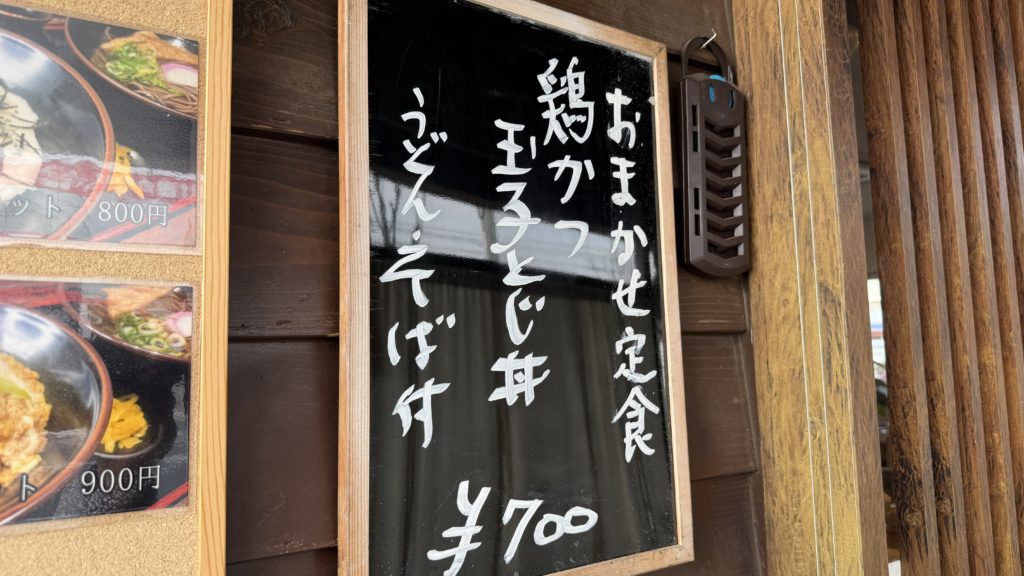 おまかせ定食
鶏かつ
玉子とじ丼
うどん・そば付
¥700
ット 800円
ト 900円